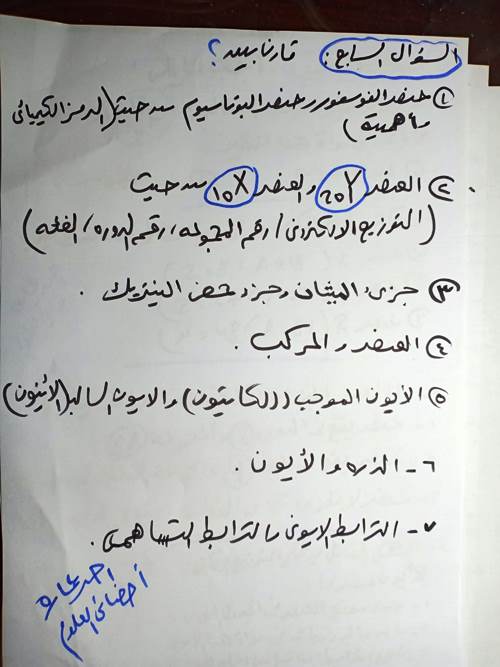 السؤال السابع: قارن بين؟
① عنصر الفوسفور وعنصر البوتاسيوم من حيث (الرمز الكيميائي
وأهمية)
② العنصر 20Y والعنصر 10X من حيث
(التوزيع الالكتروني / رقم المجموعة / رقم الدورة / الفئة)
③ جزئ الميثان وجزئ حمض النيتريك .
④ العنصر والمركب .
⑤ الأيون الموجب ((الكاتيون) والايون السالب (الأنيون)
٦- الذرة والأيون .
٧- الترابط الايوني والترابط التساهمي .
احمد
أخصائي العلوم